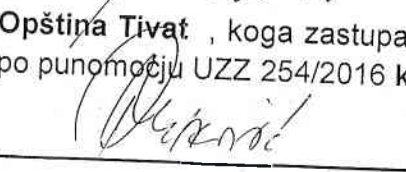 Opština Tivat , koga zastupa
po punomoćju UZZ 254/2016 k